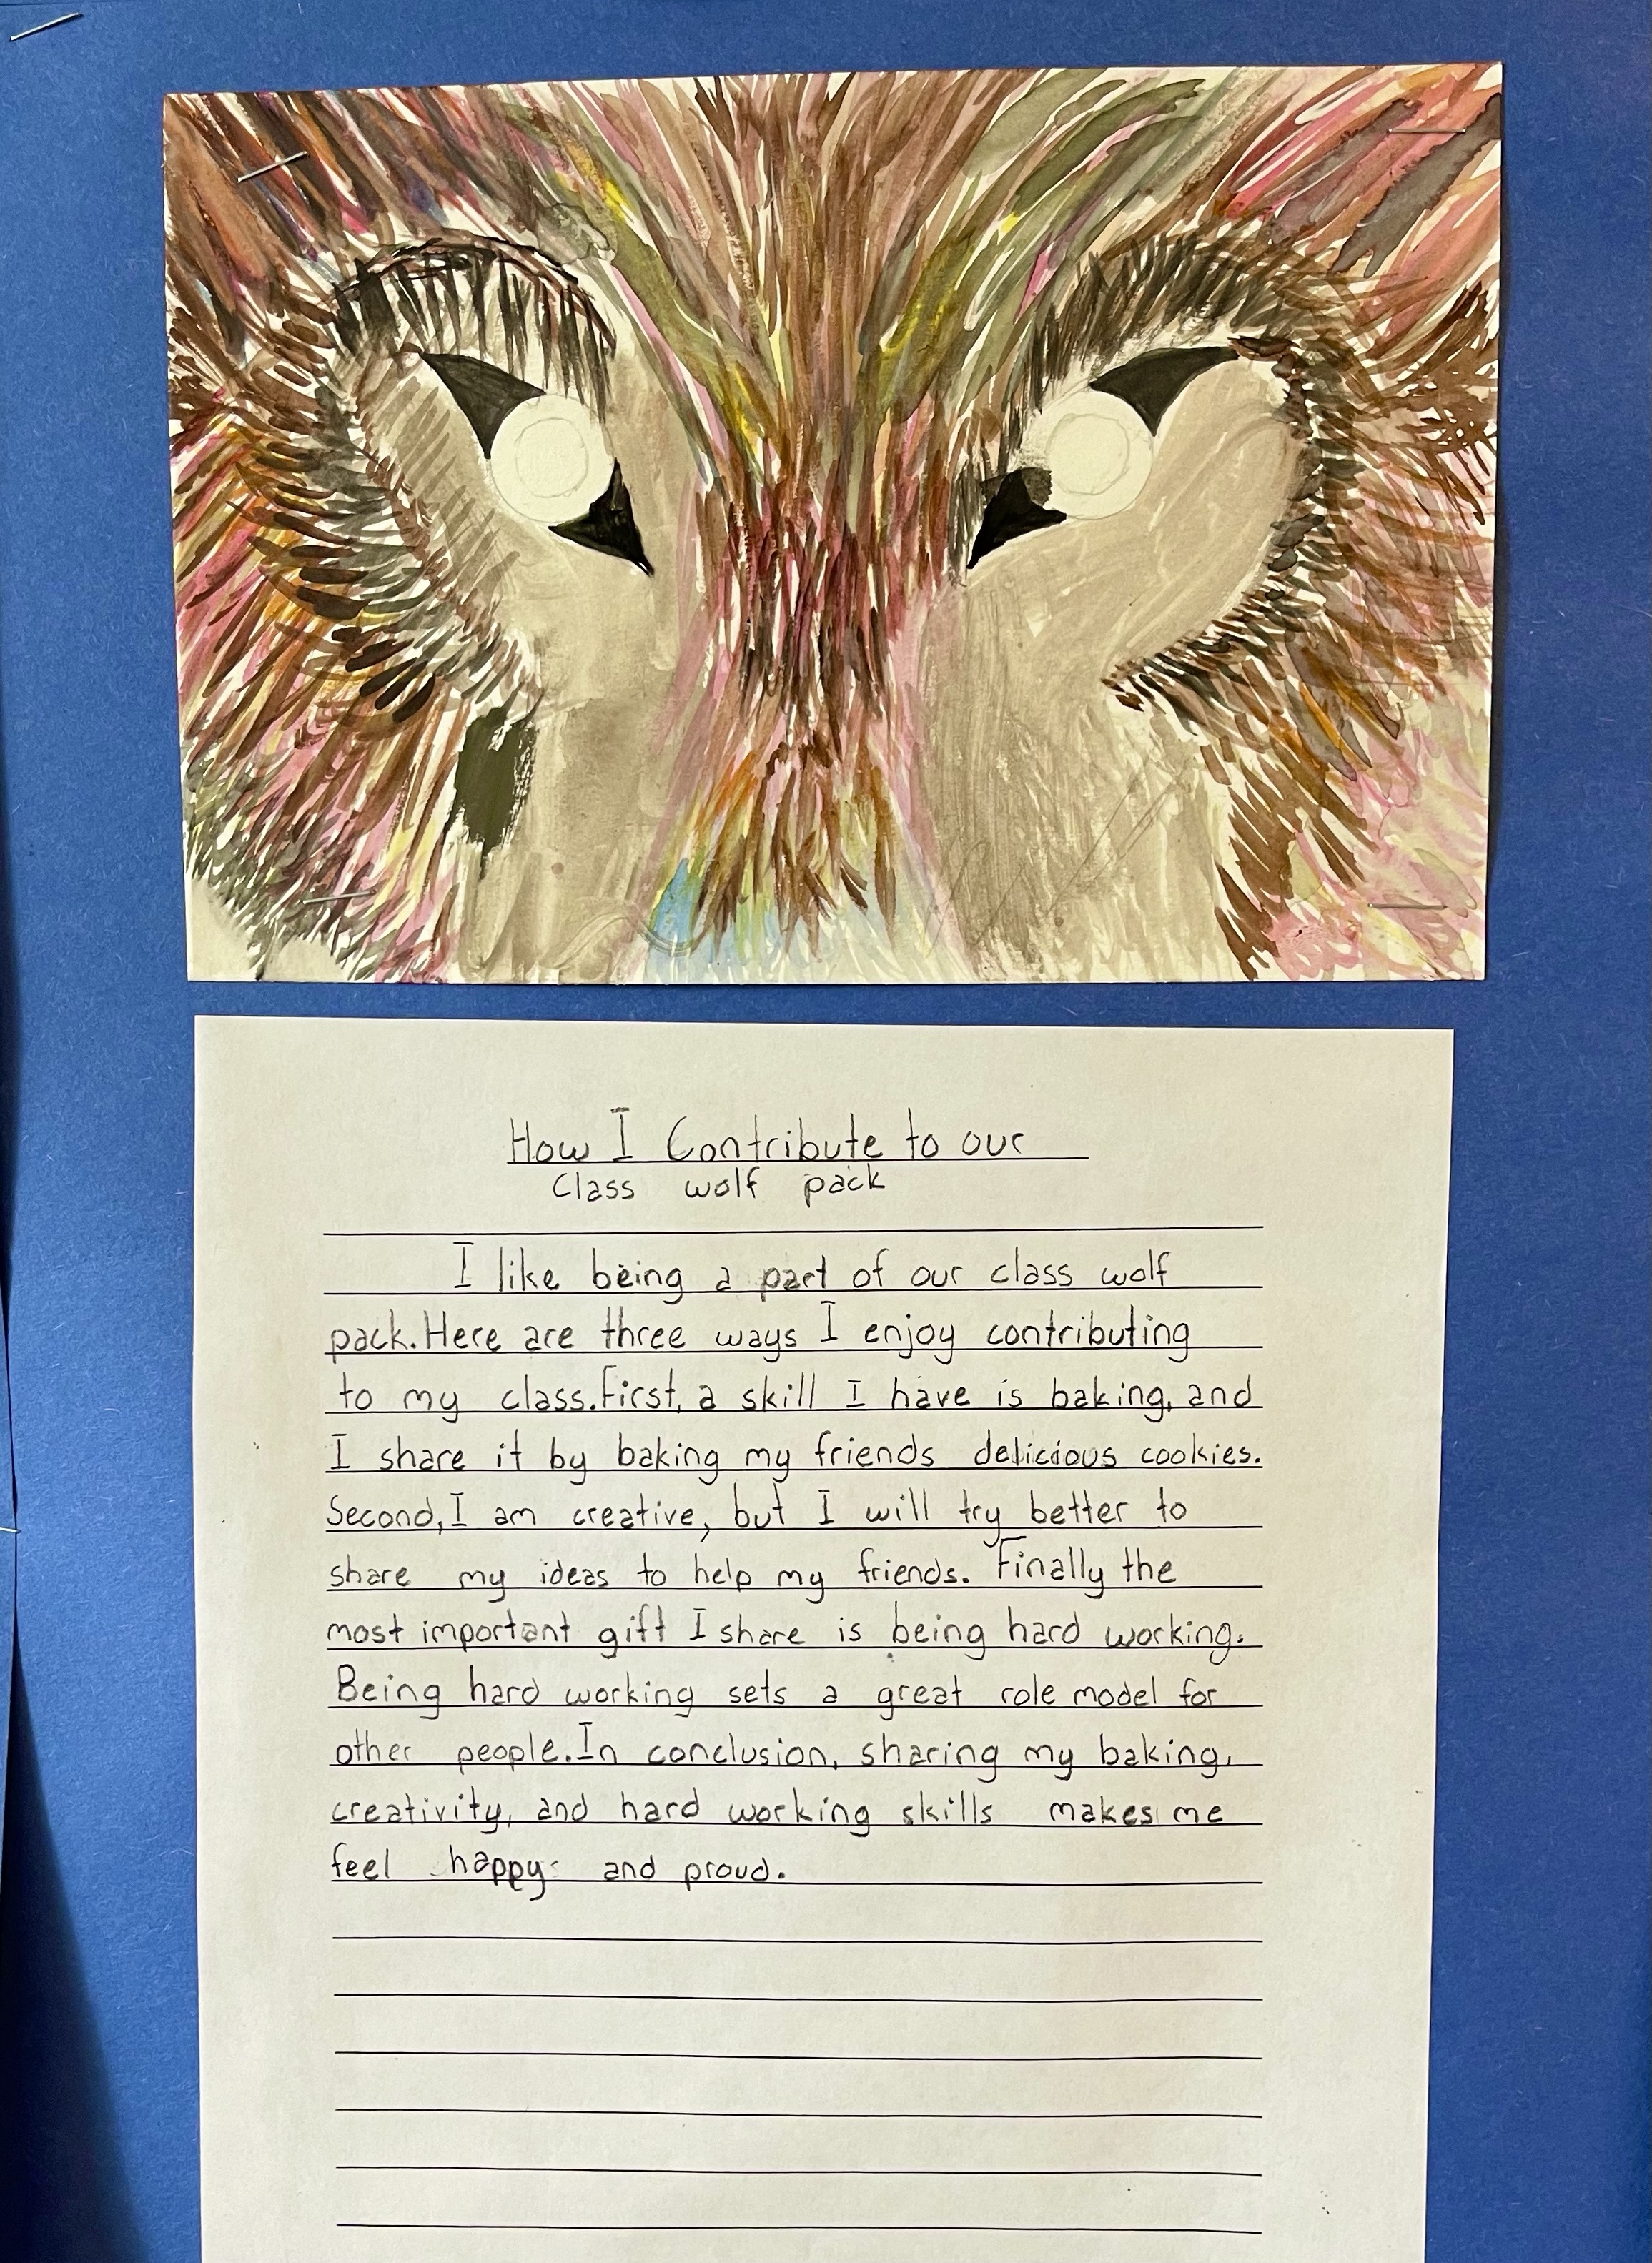 How I Contribute to our
Class wolf pack
I like being a part of our class wolf
pack. Here are three ways I enjoy contributing
to my class. First, a skill I have is baking, and
I share it by baking my friends delicious cookies.
Second, I am creative, but I will try better to
share my ideas to help my friends. Finally the
most important gift I share is being hard working.
Being hard working sets a great role model for
other people. In conclusion, sharing my baking,
creativity, and hard working skills makes me
feel happy and proud.